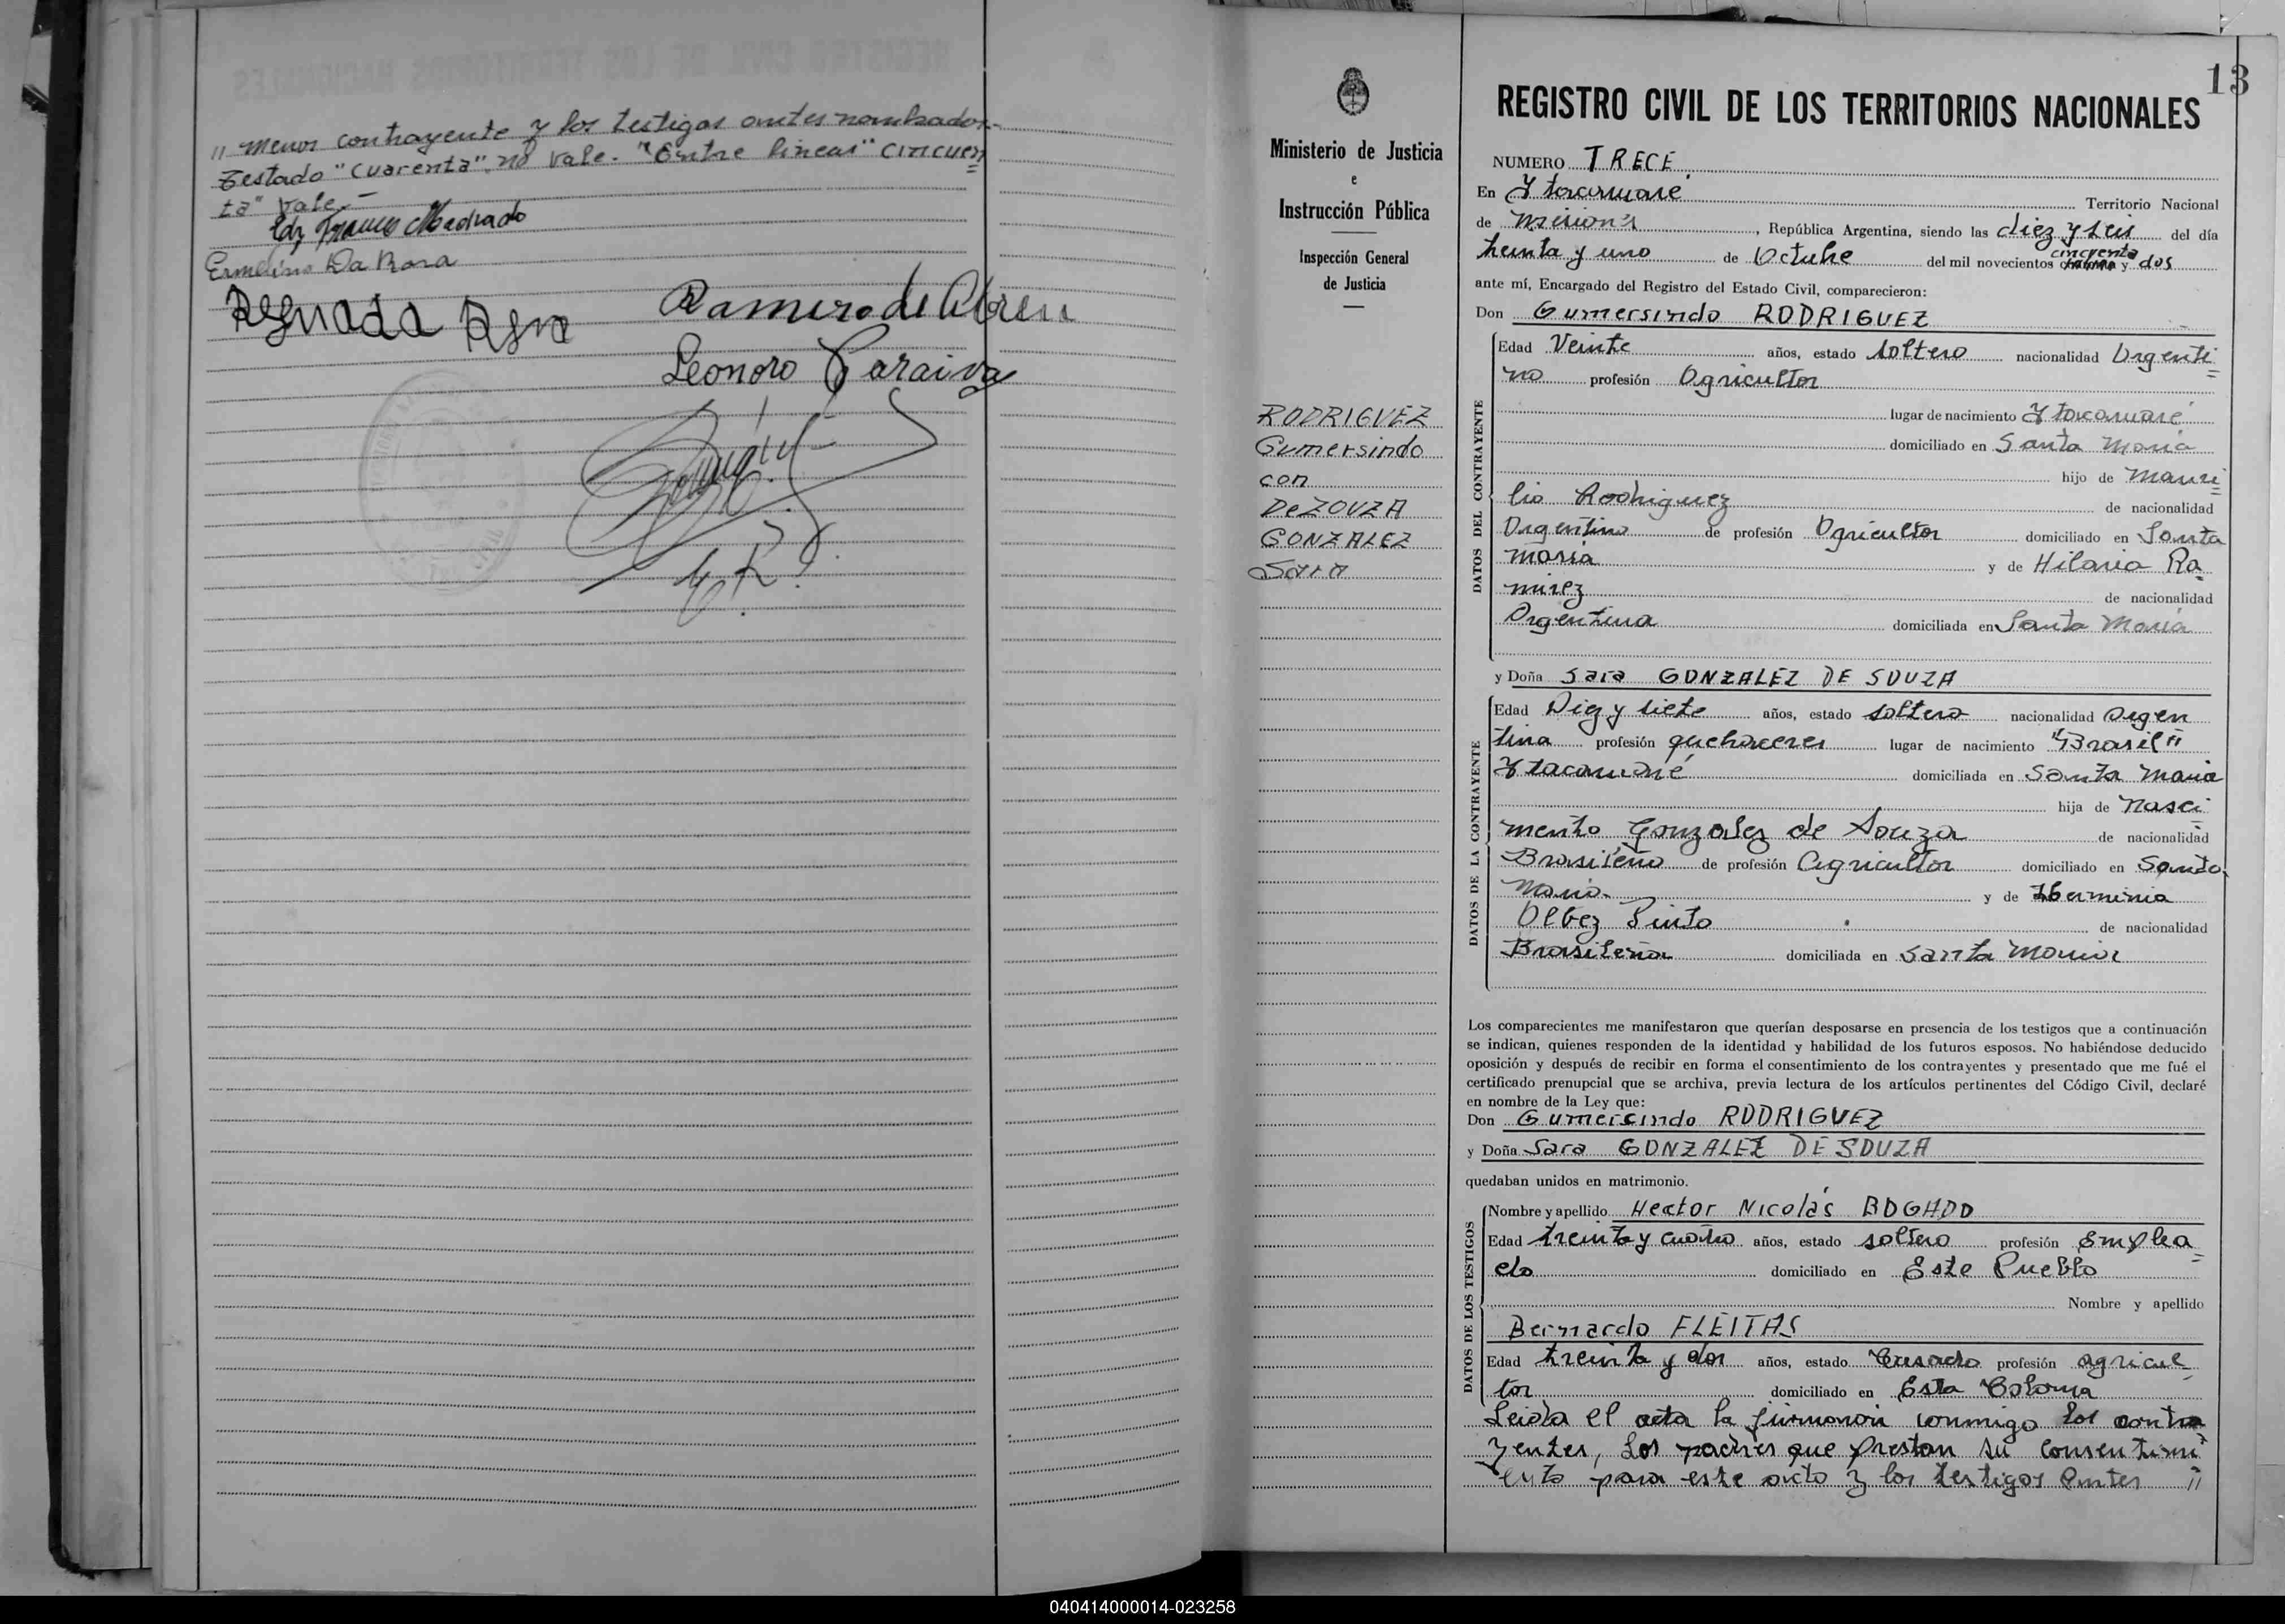 " menor contrayente y los testigos antes nombrados.-
Testado "cuarenta". no vale. "Entre lineas" cincuen
ta" vale.-
Ermelino Da Rosa
Ramiro de Abreu
Leonoro Saraiva
13
REGISTRO CIVIL DE LOS TERRITORIOS NACIONALES
Ministerio de Justicia
e
Instrucción Pública
Inspección General
de Justicia
RODRIGUEZ
Gumersindo
con
DeZOUZA
GONZALEZ
Sara
NUMERO TRECE
En Ytacaruaré Territorio Nacional
de Misiones, República Argentina, siendo las diez y seis del día
treinta y uno de Octubre del mil novecientos cincuenta y dos
ante mí, Encargado del Registro del Estado Civil, comparecieron:
Don Gumersindo RODRIGUEZ
DATOS DEL CONTRAYENTE
Edad Veinte años, estado soltero nacionalidad Argenti
no profesión Agricultor
lugar de nacimiento Ytacaruaré
domiciliado en Santa Maria
hijo de Mauri
lio Rodriguez de nacionalidad
Argentino de profesión Agricultor domiciliado en Santa
Maria y de Hilaria Ra
mirez de nacionalidad
Argentina domiciliada en Santa Maria
y Doña Sara GONZALEZ DE SOUZA
DATOS DE LA CONTRAYENTE
Edad Diez y siete años, estado soltera nacionalidad Argen
tina profesión quehaceres lugar de nacimiento "Brasil"
Ytacaruaré domiciliada en Santa Maria
hija de Nasci
mento Gonzalez de Souza de nacionalidad
Brasileño de profesión Agricultor domiciliado en Santa
Maria y de Herminia
Olbez Pinto de nacionalidad
Brasileña domiciliada en Santa Maria
Los comparecientes me manifestaron que querían desposarse en presencia de los testigos que a continuación
se indican, quienes responden de la identidad y habilidad de los futuros esposos. No habiéndose deducido
oposición y después de recibir en forma el consentimiento de los contrayentes y presentado que me fué el
certificado prenupcial que se archiva, previa lectura de los artículos pertinentes del Código Civil, declaré
en nombre de la Ley que:
Don Gumersindo RODRIGUEZ
y Doña Sara GONZALEZ DE SOUZA
quedaban unidos en matrimonio.
DATOS DE LOS TESTIGOS
Nombre y apellido Hector Nicolás BOGADO
Edad treinta y cuatro años, estado soltero profesión Emplea
do domiciliado en Este Pueblo
Nombre y apellido
Bernardo FLEITAS
Edad treinta y dos años, estado Casado profesión agricul
tor domiciliado en Esta Colonia
Leida el acta la firmaron conmigo los contra
yentes, los padres que prestan su consentimi
ento para este acto y los testigos antes "
040414000014-023258